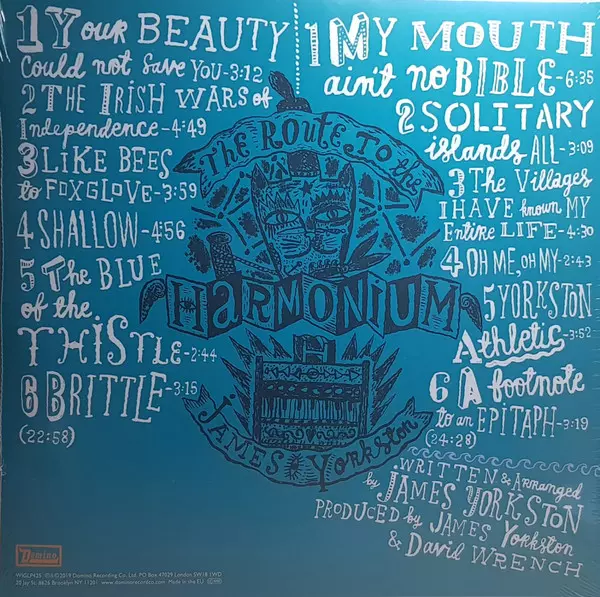 1 Your BEAUTY
Could not Save You-3:12
2 THE IRISH WARS of
Independence-4:49
3 LIKE BEES
to FOXGLOVE-3:59
4 SHALLOW-4:56
5 The BLUE
of the
THISTLE-2:44
6 BRITTLE-3:15
(22:58)
1 MY MOUTH
ain't no BIBLE-6:35
2 SOLITARY
islands ALL-3:09
3 The Villages
I HAVE known MY
Entire LIFE-4:30
4 OH ME, OH MY-2:43
5 YORKSTON
Athletic-3:52
6 A footnote
to an EPITAPH-3:19
(24:28)
The ROUTE TO the
HARMONIUM
H
JAMES YORKSTON
WRITTEN & ARRANGED
by JAMES YORKSTON
PRODUCED by JAMES YORKSTON
& David WRENCH
Domino
WIGLP425 ℗&©2019 Domino Recording Co. Ltd. PO Box 47029 London SW18 1WD
20 Jay St. #626 Brooklyn NY 11201 www.dominorecordco.com Made in the EU